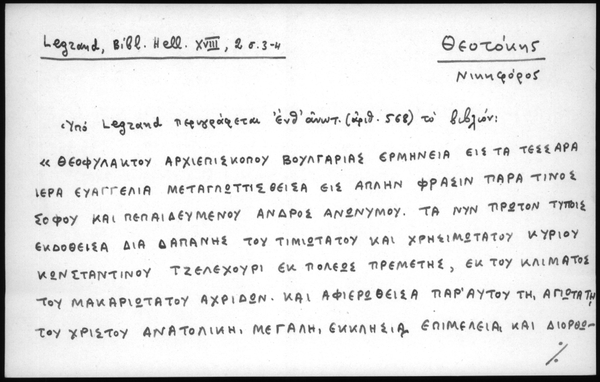 Legrand, Bibl. Hell. XVIII, 2 σ. 3-4
Θεοτόκης
Νικηφόρος
Ὑπό Legrand περιγράφεται ἐνθ' ἀνωτ. (ἀριθ. 568) τό βιβλιόν:
« ΘΕΟΦΥΛΑΚΤΟΥ ΑΡΧΙΕΠΙΣΚΟΠΟΥ ΒΟΥΛΓΑΡΙΑΣ ΕΡΜΗΝΕΙΑ ΕΙΣ ΤΑ ΤΕΣΣΑΡΑ
ΙΕΡΑ ΕΥΑΓΓΕΛΙΑ ΜΕΤΑΓΛΩΤΤΙΣΘΕΙΣΑ ΕΙΣ ΑΠΛΗΝ ΦΡΑΣΙΝ ΠΑΡΑ ΤΙΝΟΣ
ΣΟΦΟΥ ΚΑΙ ΠΕΠΑΙΔΕΥΜΕΝΟΥ ΑΝΔΡΟΣ ΑΝΩΝΥΜΟΥ. ΤΑ ΝΥΝ ΠΡΩΤΟΝ ΤΥΠΟΙΣ
ΕΚΔΟΘΕΙΣΑ ΔΙΑ ΔΑΠΑΝΗΣ ΤΟΥ ΤΙΜΙΩΤΑΤΟΥ ΚΑΙ ΧΡΗΣΙΜΩΤΑΤΟΥ ΚΥΡΙΟΥ
ΚΩΝΣΤΑΝΤΙΝΟΥ ΤΖΕΛΕΧΟΥΡΙ ΕΚ ΠΟΛΕΩΣ ΠΡΕΜΕΤΗΣ, ΕΚ ΤΟΥ ΚΛΙΜΑΤΟΣ
ΤΟΥ ΜΑΚΑΡΙΩΤΑΤΟΥ ΑΧΡΙΔΩΝ. ΚΑΙ ΑΦΙΕΡΩΘΕΙΣΑ ΠΑΡ' ΑΥΤΟΥ ΤΗͺ ΑΓΙΩΤΑΤΗͺ
ΤΟΥ ΧΡΙΣΤΟΥ ΑΝΑΤΟΛΙΚΗͺ ΜΕΓΑΛΗͺ ΕΚΚΛΗΣΙΑͺ ΕΠΙΜΕΛΕΙΑͺ ΚΑΙ ΔΙΟΡΘΩ-
./.